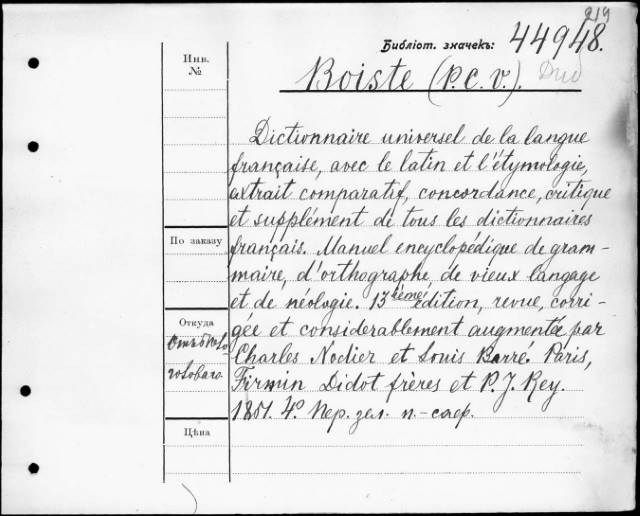 219
Библіот. значекъ: 44948.
Boiste (P. C. V.).
Инв.
№
Dictionnaire universel de la langue
française, avec le latin et l'étymologie,
extrait comparatif, concordance, critique
et supplément de tous les dictionnaires
По заказу
français. Manuel encyclopédique de gram-
maire, d'orthographe, de vieux langage
et de néologie. 13ième édition, revue, corri-
Откуда
gée et considerablement augmentée par
Charles Nodier et Louis Barré. Paris,
Firmin Didot frères et P. J. Rey.
1851. 4º. Пер. зел. п.-саф.
Цѣна